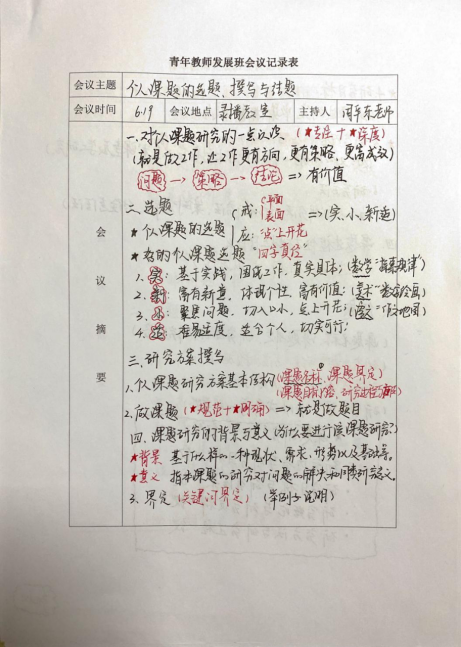 青年教师发展班会议记录表
会议主题 个人课题的选题、撰写与结题
会议时间 6.19 会议地点 录播教室 主持人 老师
会议摘要
一、对个人课题研究的一点认识 (★专注+★深度)
(就是做工作,让工作更有方向,更有策略,更富成效)
问题→策略→结论 => 有价值
二、选题
★个人课题的选题 戒: 面
表面 =>(实、小、新、适)
应:"点"上开花
★名的个人课题选题"四字真经"
1. 实:基于实践,围绕工作,真实具体;(数学" ")
2. 新:富有新意,体现个性,富有价值;(美术" 绘画)
3. 小:聚焦问题,切入口小,点上开花;(语文"作文地图)
4. 适:难易适度,适合个人,切实可行;
三、研究方案撰写
1、个人课题研究方案基本结构(课题名称、课题界定)
(课题目标内容、研究过程
2. 做课题(★规范+★明确)=> 就是做题目
四、课题研究的背景与意义(为什么要进行该课题研究?)
★背景 基于什么样的一种现状、需求、形势以及基础等。
★意义 指本课题的研究对问题的解决和同类研究意义。
3. 界定(关键词界定)(举例子说明)